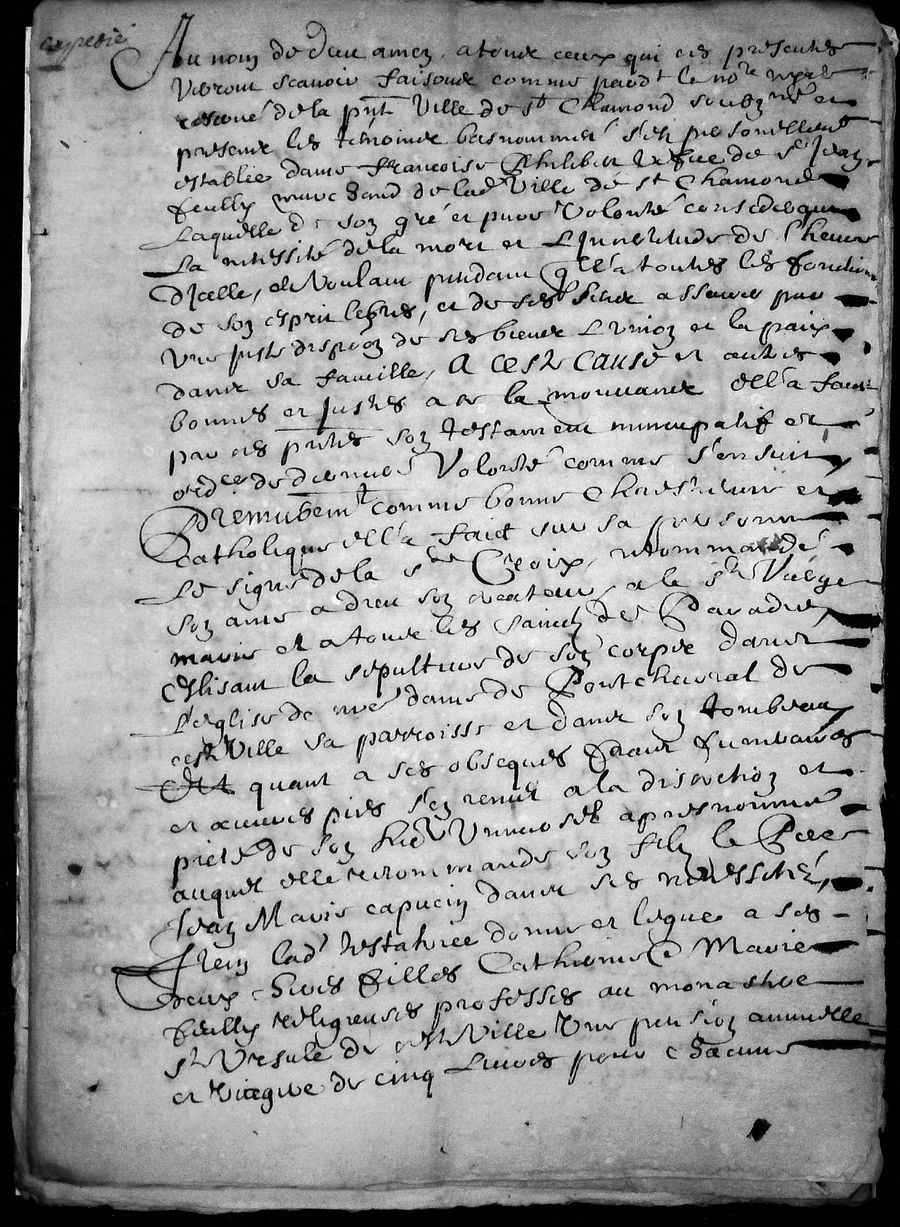 expedié
Au nom de dieu amen, a tous ceux qui ces presentes
verront scavoir faisons comme pardt le nore royal
reservé de la pnt ville de st Chamond soubzné et
presens les temoins bas nommes s'est personellemt
establie dame francoise Philibert vefue de sr Jean
feully marchand de lad ville de st Chamond
Laquelle de son gré et pure volonté considerant
La necessité de la mort et L'incertitude de l'heure
d'Icelle, et voulant pendant qu'ell'a toutes les fonction
de son esprit libres, et de ses sens asseurer par
une juste dispoon de ses biens L'union et la paix
dans sa famille, A ceste cause et autres
bonnes et justes a ce la mouvants ell'a faict
par ces pntes son testament nuncupatif et
ordce de derniere volonté comme s'ensuit
Premierement comme bonne Chrestienne et
catholique ell'a faict sur sa personne
Le signe de la ste Croix, recommandé
son ame a dieu son createur, a la ste Vierge
marie et a tous les saincts de Paradis,
Eslisant la sepulture de son corps dans
L'eglise de nre dame de Pontcharal de
ceste ville sa parroisse et dans son tombeau
Et quant a ses obseques fraix funeraires
et œuvres pies s'en remet a la discretion et
pieté de son herer universel apres nommé
auquel elle recommande son filz le Pere
Jean Marie capucin dans ses necessités,
Item lad testatrice donne et legue a ses
deux cheres filles Catherine et Marie
feully religieuses professes au monastere
ste Ursule de ceste ville une pension annuelle
et viagere de cinq Livres pour chacune